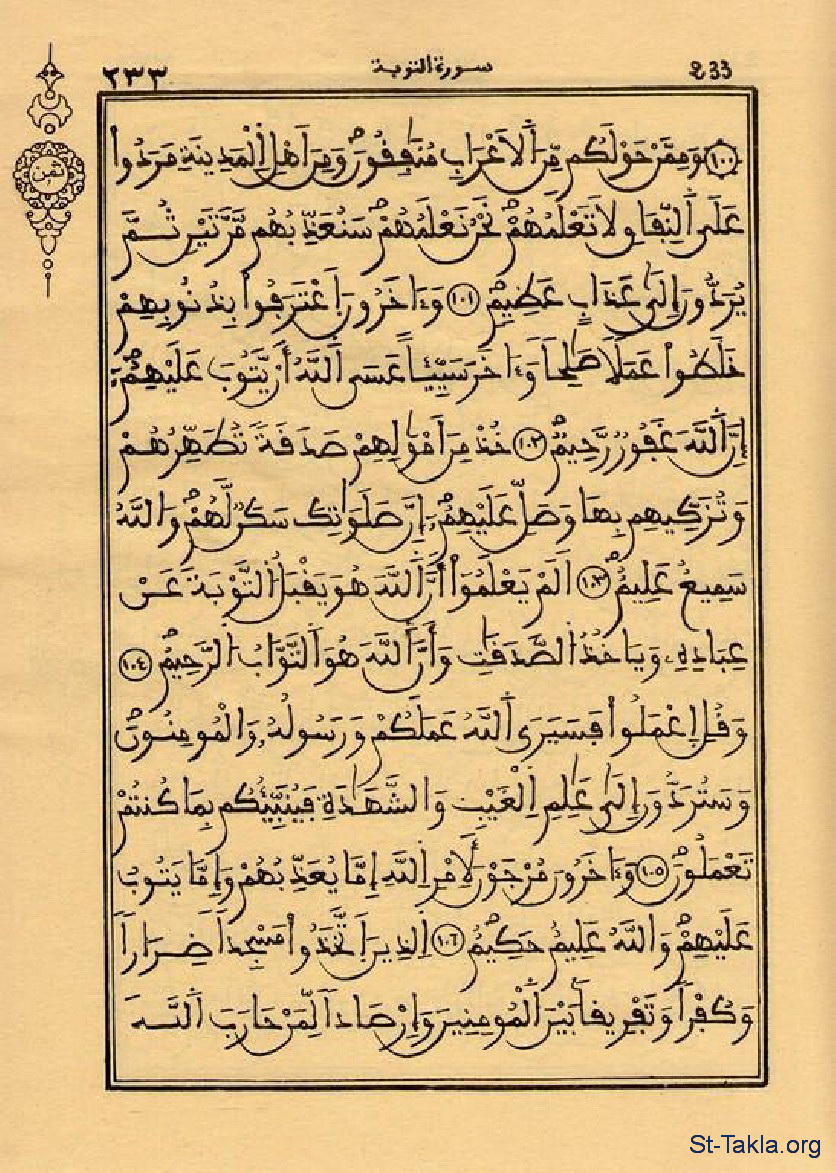 ٢٣٣ سورة التوبة 233
ثمن
۝١٠٠ وَمِمَّنْ حَوْلَكُم مِّنَ اَ۬لَاعْرَابِ مُنَٰفِقُونَ وَمِنَ اَهْلِ اِ۬لْمَدِينَةِ مَرَدُواْ
عَلَى اَ۬لنِّفَاقِ لَا تَعْلَمُهُمْ نَحْنُ نَعْلَمُهُمْ سَنُعَذِّبُهُم مَّرَّتَيْنِ ثُمَّ
يُرَدُّونَ إِلَىٰ عَذَابٍ عَظِيمٍ ١٠١ وَءَاخَرُونَ اَ۪عْتَرَفُواْ بِذُنُوبِهِمْ
خَلَطُواْ عَمَلًا صَٰلِحًا وَءَاخَرَ سَيِّئًا عَسَى اَ۬للَّهُ أَنْ يَّتُوبَ عَلَيْهِمُۥ
إِنَّ اَ۬للَّهَ غَفُورٌ رَّحِيمٌ ١٠٢ خُذْ مِنَ اَمْوَٰلِهِمْ صَدَقَةً تُطَهِّرُهُمْ
وَتُزَكِّيهِم بِهَا وَصَلِّ عَلَيْهِمُۥ إِنَّ صَلَوَٰتِكَ سَكَنٌ لَّهُمْ وَاللَّهُ
سَمِيعٌ عَلِيمٌ ١٠٣ اَلَمْ يَعْلَمُواْ أَنَّ اَ۬للَّهَ هُوَ يَقْبَلُ اُ۬لتَّوْبَةَ عَنْ
عِبَادِهِۦ وَيَاخُذُ اُ۬لصَّدَقَٰتِ وَأَنَّ اَ۬للَّهَ هُوَ اَ۬لتَّوَّابُ اُ۬لرَّحِيمُ ١٠٤
وَقُلِ اِ۪عْمَلُواْ فَسَيَرَى اَ۬للَّهُ عَمَلَكُمْ وَرَسُولُهُۥ وَالْمُومِنُونَ
وَسَتُرَدُّونَ إِلَىٰ عَٰلِمِ اِ۬لْغَيْبِ وَالشَّهَٰدَةِ فَيُنَبِّئُكُم بِمَا كُنتُمْ
تَعْمَلُونَ ١٠٥ وَءَاخَرُونَ مُرْجَوْنَ لِأَمْرِ اِ۬للَّهِ إِمَّا يُعَذِّبُهُمْ وَإِمَّا يَتُوبُ
عَلَيْهِمْ وَاللَّهُ عَلِيمٌ حَكِيمٌ ١٠٦ اَ۬لذِينَ اَ۪تَّخَذُواْ مَسْجِدًا ضِرَارًا
وَكُفْرًا وَتَفْرِيقًا بَيْنَ اَ۬لْمُومِنِينَ وَإِرْصَادًا لِّمَنْ حَارَبَ اَ۬للَّهَ
St-Takla.org